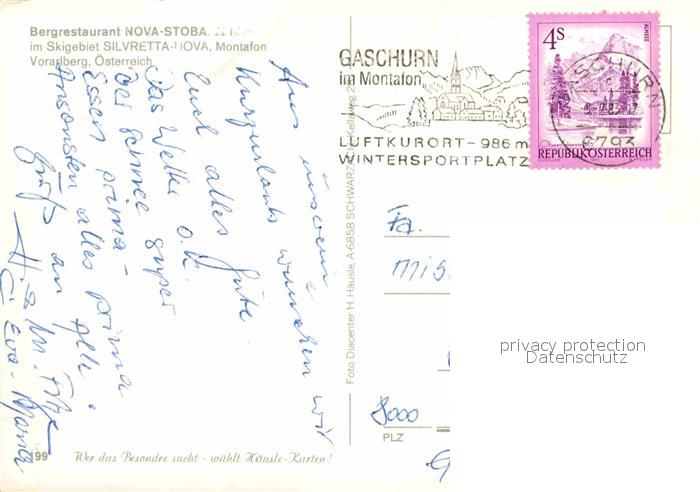 Bergrestaurant NOVA-STOBA,
im Skigebiet SILVRETTA-NOVA, Montafon
Vorarlberg, Österreich
Aus unserem
Kurzurlaub wünschen wir
Euch alles Gute
Das Wetter o.k.
der Schnee super
Essen prima -
Ansonsten alles prima
Gruß an alle.
Eva-Maria
199
Wer das Besondre sucht - wählt Häusle-Karten!
Foto Diacenter H. Häusle, A-6858 SCHWARZACH, Kellaweg 2
GASCHURN
im Montafon
LUFTKURORT - 986 m
WINTERSPORTPLATZ
4S
ALMSEE
REPUBLIK ÖSTERREICH
GASCHURN
6793
Fa.
8000
PLZ
privacy protection
Datenschutz